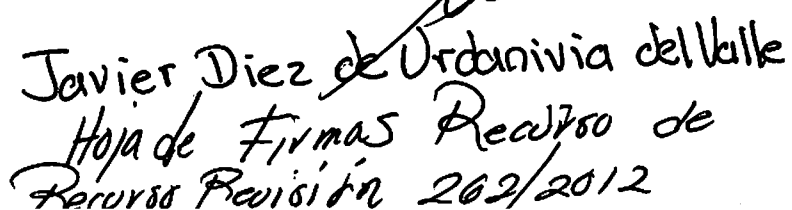 Javier Diez de Urdanivia del Valle
Hoja de Firmas Recurso de
Recurso Revisión 262/2012